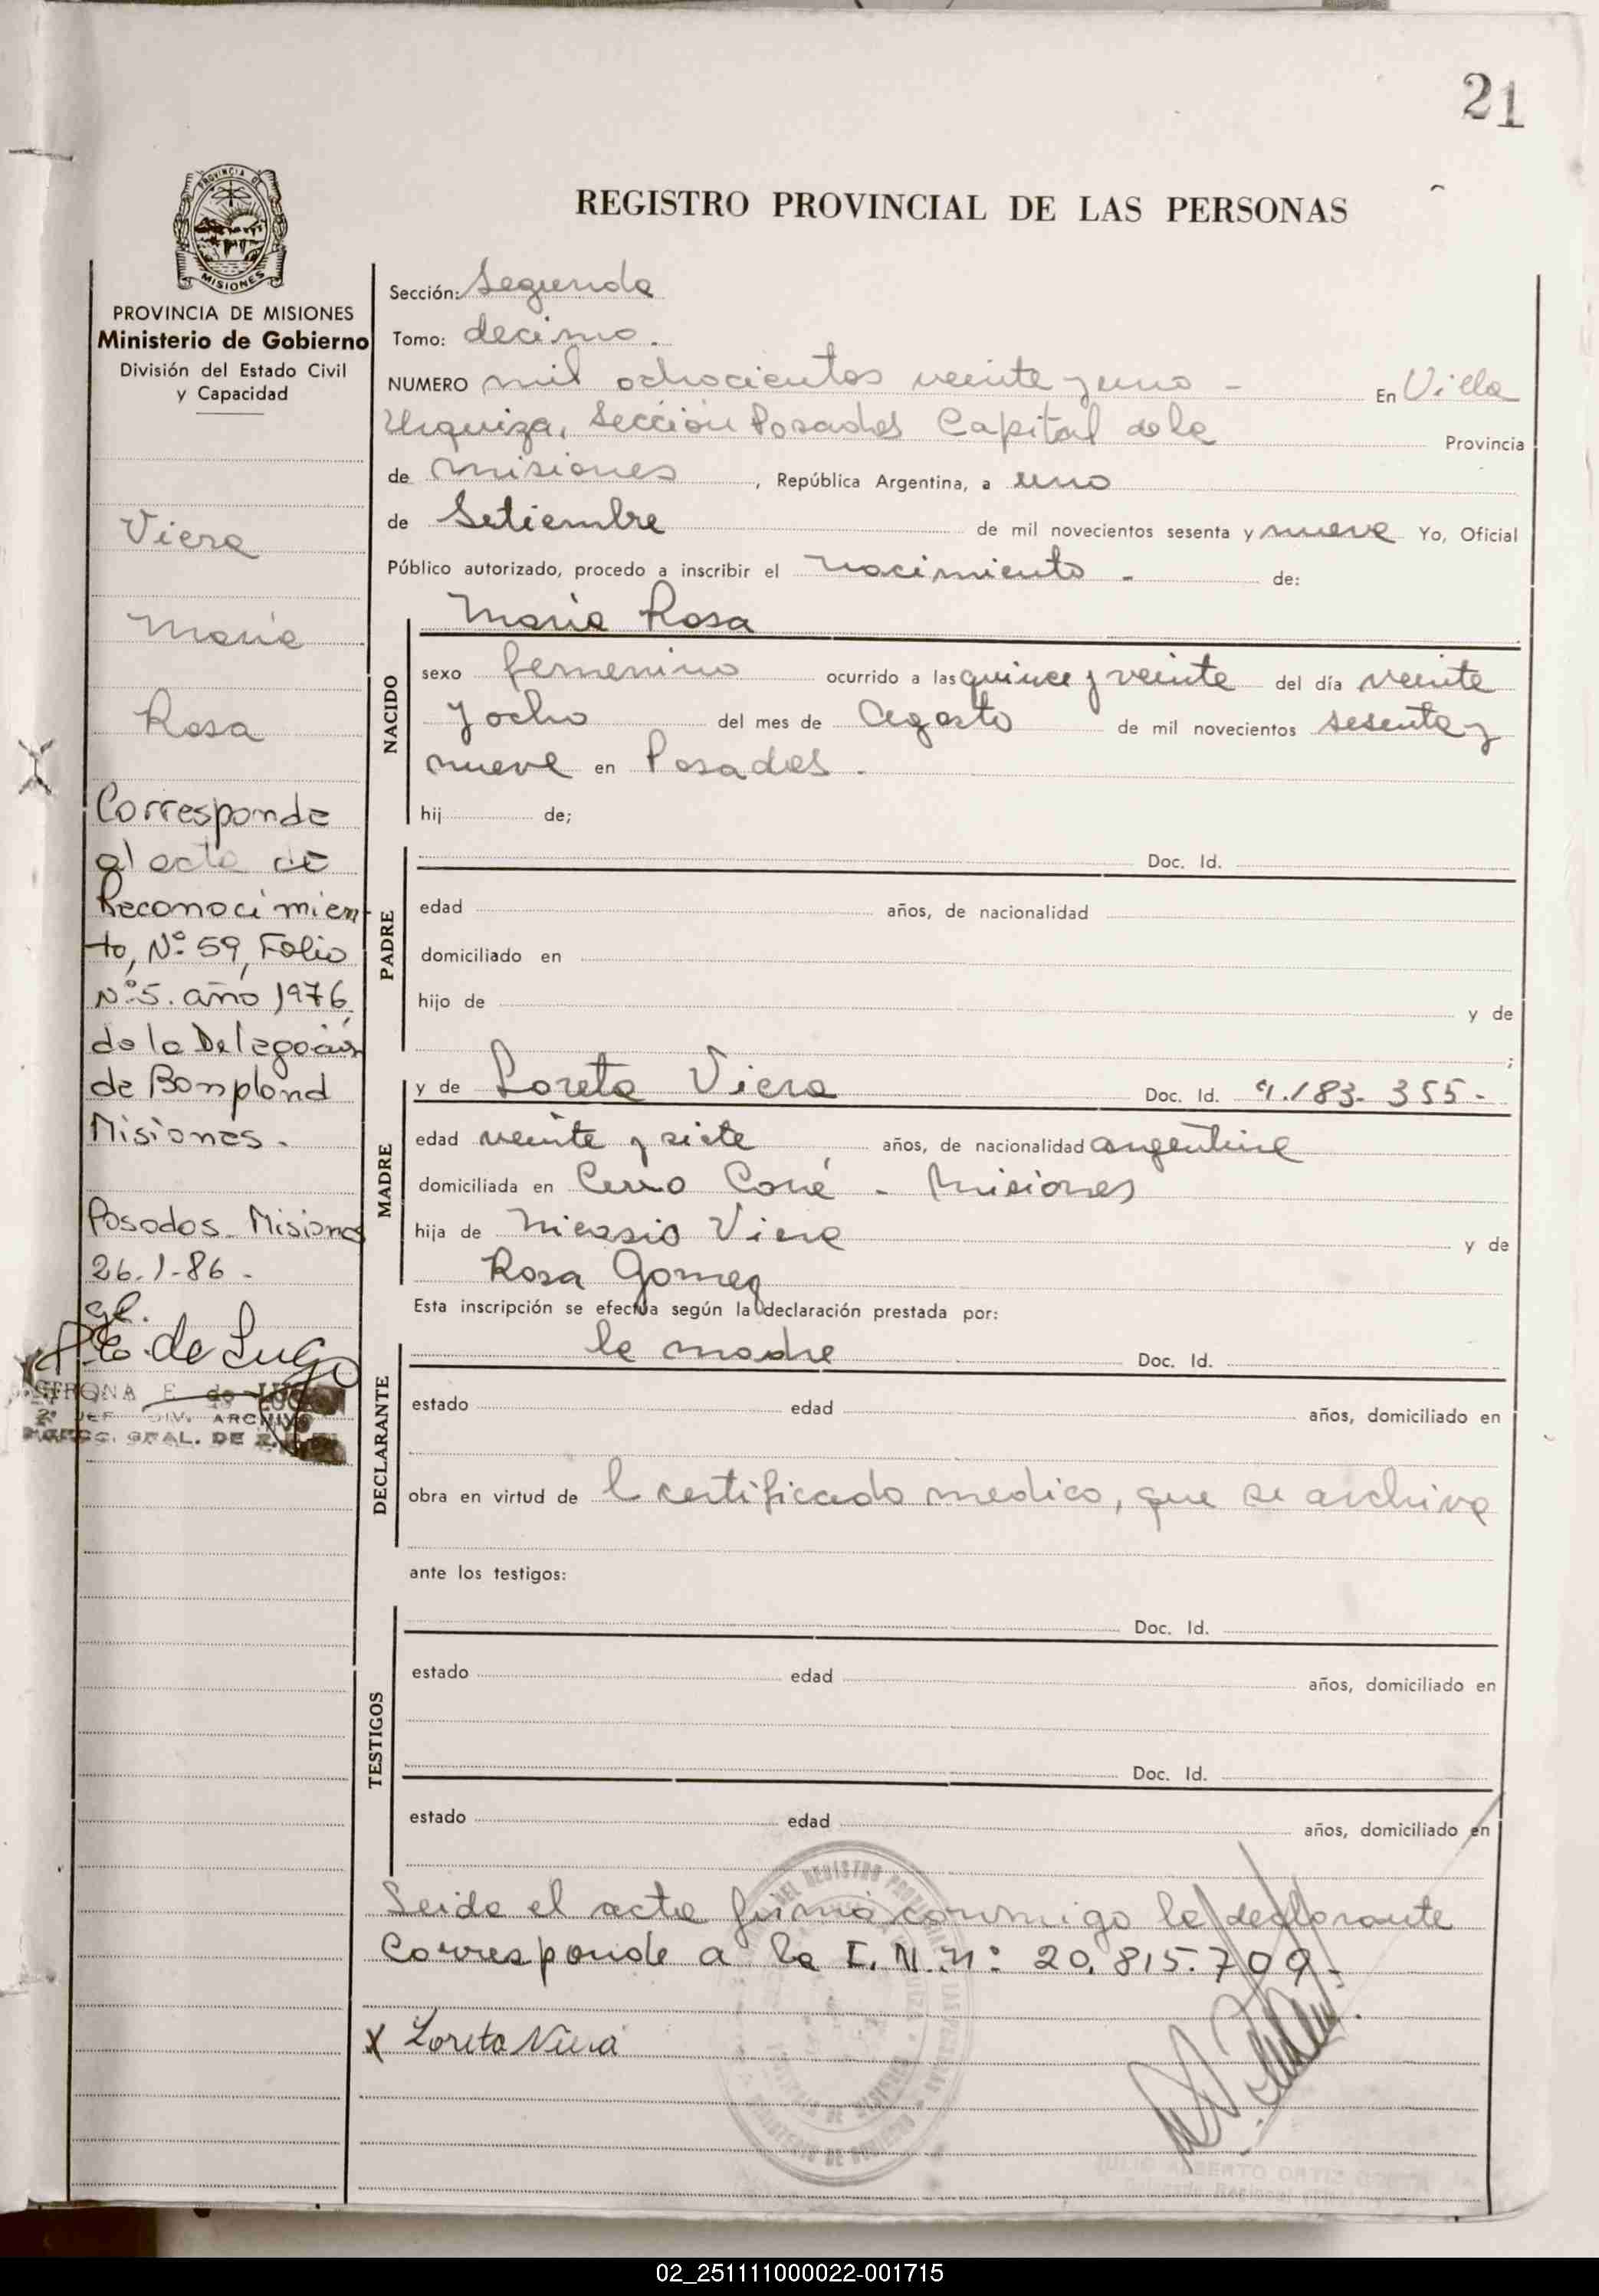 21
REGISTRO PROVINCIAL DE LAS PERSONAS
PROVINCIA DE
MISIONES
PROVINCIA DE MISIONES
Ministerio de Gobierno
División del Estado Civil
y Capacidad
Viera
Maria
Rosa
Corresponde
al acta de
Reconocimien-
to, Nº 59, Folio
Nº 5. año 1976
de la Delegación
de Bonpland
Misiones.
Posadas Misiones
26.1.86.
E. de Lugo
E. de
DIV. ARCHIVO
GRAL. DE
Sección: Segunda
Tomo: decimo.
NUMERO mil ochocientos veinte y uno - En Villa
Urquiza, Sección Posadas Capital de la Provincia
de Misiones, República Argentina, a uno
de Setiembre de mil novecientos sesenta y nueve Yo, Oficial
Público autorizado, procedo a inscribir el nacimiento - de:
NACIDO
Maria Rosa
sexo femenino ocurrido a las quince y veinte del día veinte
y ocho del mes de Agosto de mil novecientos sesenta y
nueve en Posadas.
hij de;
PADRE
Doc. Id.
edad años, de nacionalidad
domiciliado en
hijo de y de
;
MADRE
y de Loreta Viera Doc. Id. 4.183.355-
edad veinte y siete años, de nacionalidad argentina
domiciliada en Cerro Corá - Misiones
hija de Nicasio Viera y de
Rosa Gomez
Esta inscripción se efectúa según la declaración prestada por:
DECLARANTE
la madre Doc. Id.
estado edad años, domiciliado en
obra en virtud de l certificado medico, que se archiva
ante los testigos:
TESTIGOS
Doc. Id.
estado edad años, domiciliado en
Doc. Id.
estado edad años, domiciliado en
Leida el acta firmó conmigo la declarante
Corresponde a la I. N. n: 20.815.709.
x Loreta Viera
JULIO ALBERTO ORTIZ
02_251111000022-001715